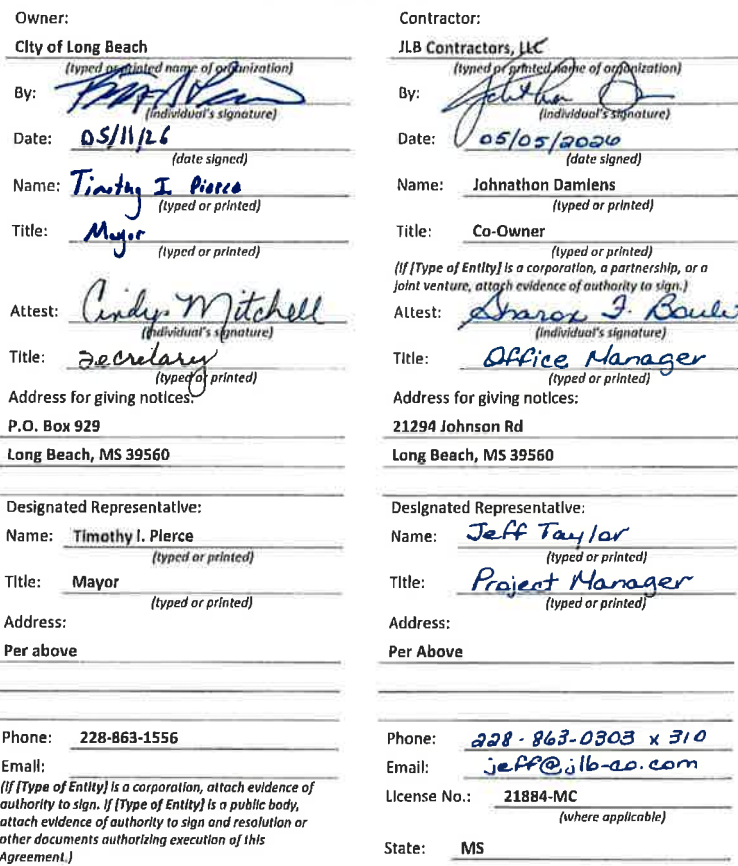 Owner:
City of Long Beach
(typed or printed name of organization)
By:
(individual's signature)
Date: 05/11/26
(date signed)
Name: Timothy I. Pierce
(typed or printed)
Title: Mayor
(typed or printed)
Attest: Cindy Mitchell
(individual's signature)
Title: Secretary
(typed or printed)
Address for giving notices:
P.O. Box 929
Long Beach, MS 39560
Designated Representative:
Name: Timothy I. Pierce
(typed or printed)
Title: Mayor
(typed or printed)
Address:
Per above
Phone: 228-863-1556
Email:
(If [Type of Entity] is a corporation, attach evidence of
authority to sign. If [Type of Entity] is a public body,
attach evidence of authority to sign and resolution or
other documents authorizing execution of this
Agreement.)
Contractor:
JLB Contractors, LLC
(typed or printed name of organization)
By:
(individual's signature)
Date: 05/05/2026
(date signed)
Name: Johnathon Damiens
(typed or printed)
Title: Co-Owner
(typed or printed)
(If [Type of Entity] is a corporation, a partnership, or a
joint venture, attach evidence of authority to sign.)
Attest: Sharon F.
(individual's signature)
Title: Office Manager
(typed or printed)
Address for giving notices:
21294 Johnson Rd
Long Beach, MS 39560
Designated Representative:
Name: Jeff Taylor
(typed or printed)
Title: Project Manager
(typed or printed)
Address:
Per Above
Phone: 228-863-0303 x 310
Email: jeff@jlb-co.com
License No.: 21884-MC
(where applicable)
State: MS